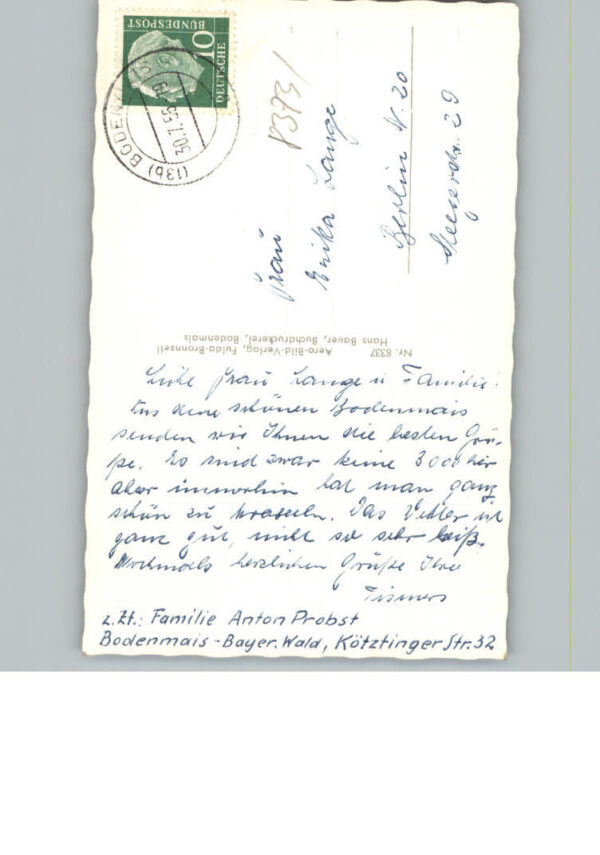 DEUTSCHE
BUNDESPOST
10
(13b) BODENMAIS
30.7.59
8373/
Frau
Erika Lange
Berlin N. 20
29
Nr. 8337 Aero-Bild-Verlag, Fulda-Bronnzell
Hans Bauer, Buchdruckerei, Bodenmais
Liebe Frau Lange u Familie!
Aus dem schönen Bodenmais
senden wir Ihnen die besten Grü-
ße. Es sind zwar keine 3000der
aber immerhin hat man ganz
schön zu kraxeln. Das Wetter ist
ganz gut, nicht so sehr heiß.
Nochmals herzlichen Grüße Ihre
z.Zt.: Familie Anton Probst
Bodenmais-Bayer.Wald, Kötztinger Str. 32